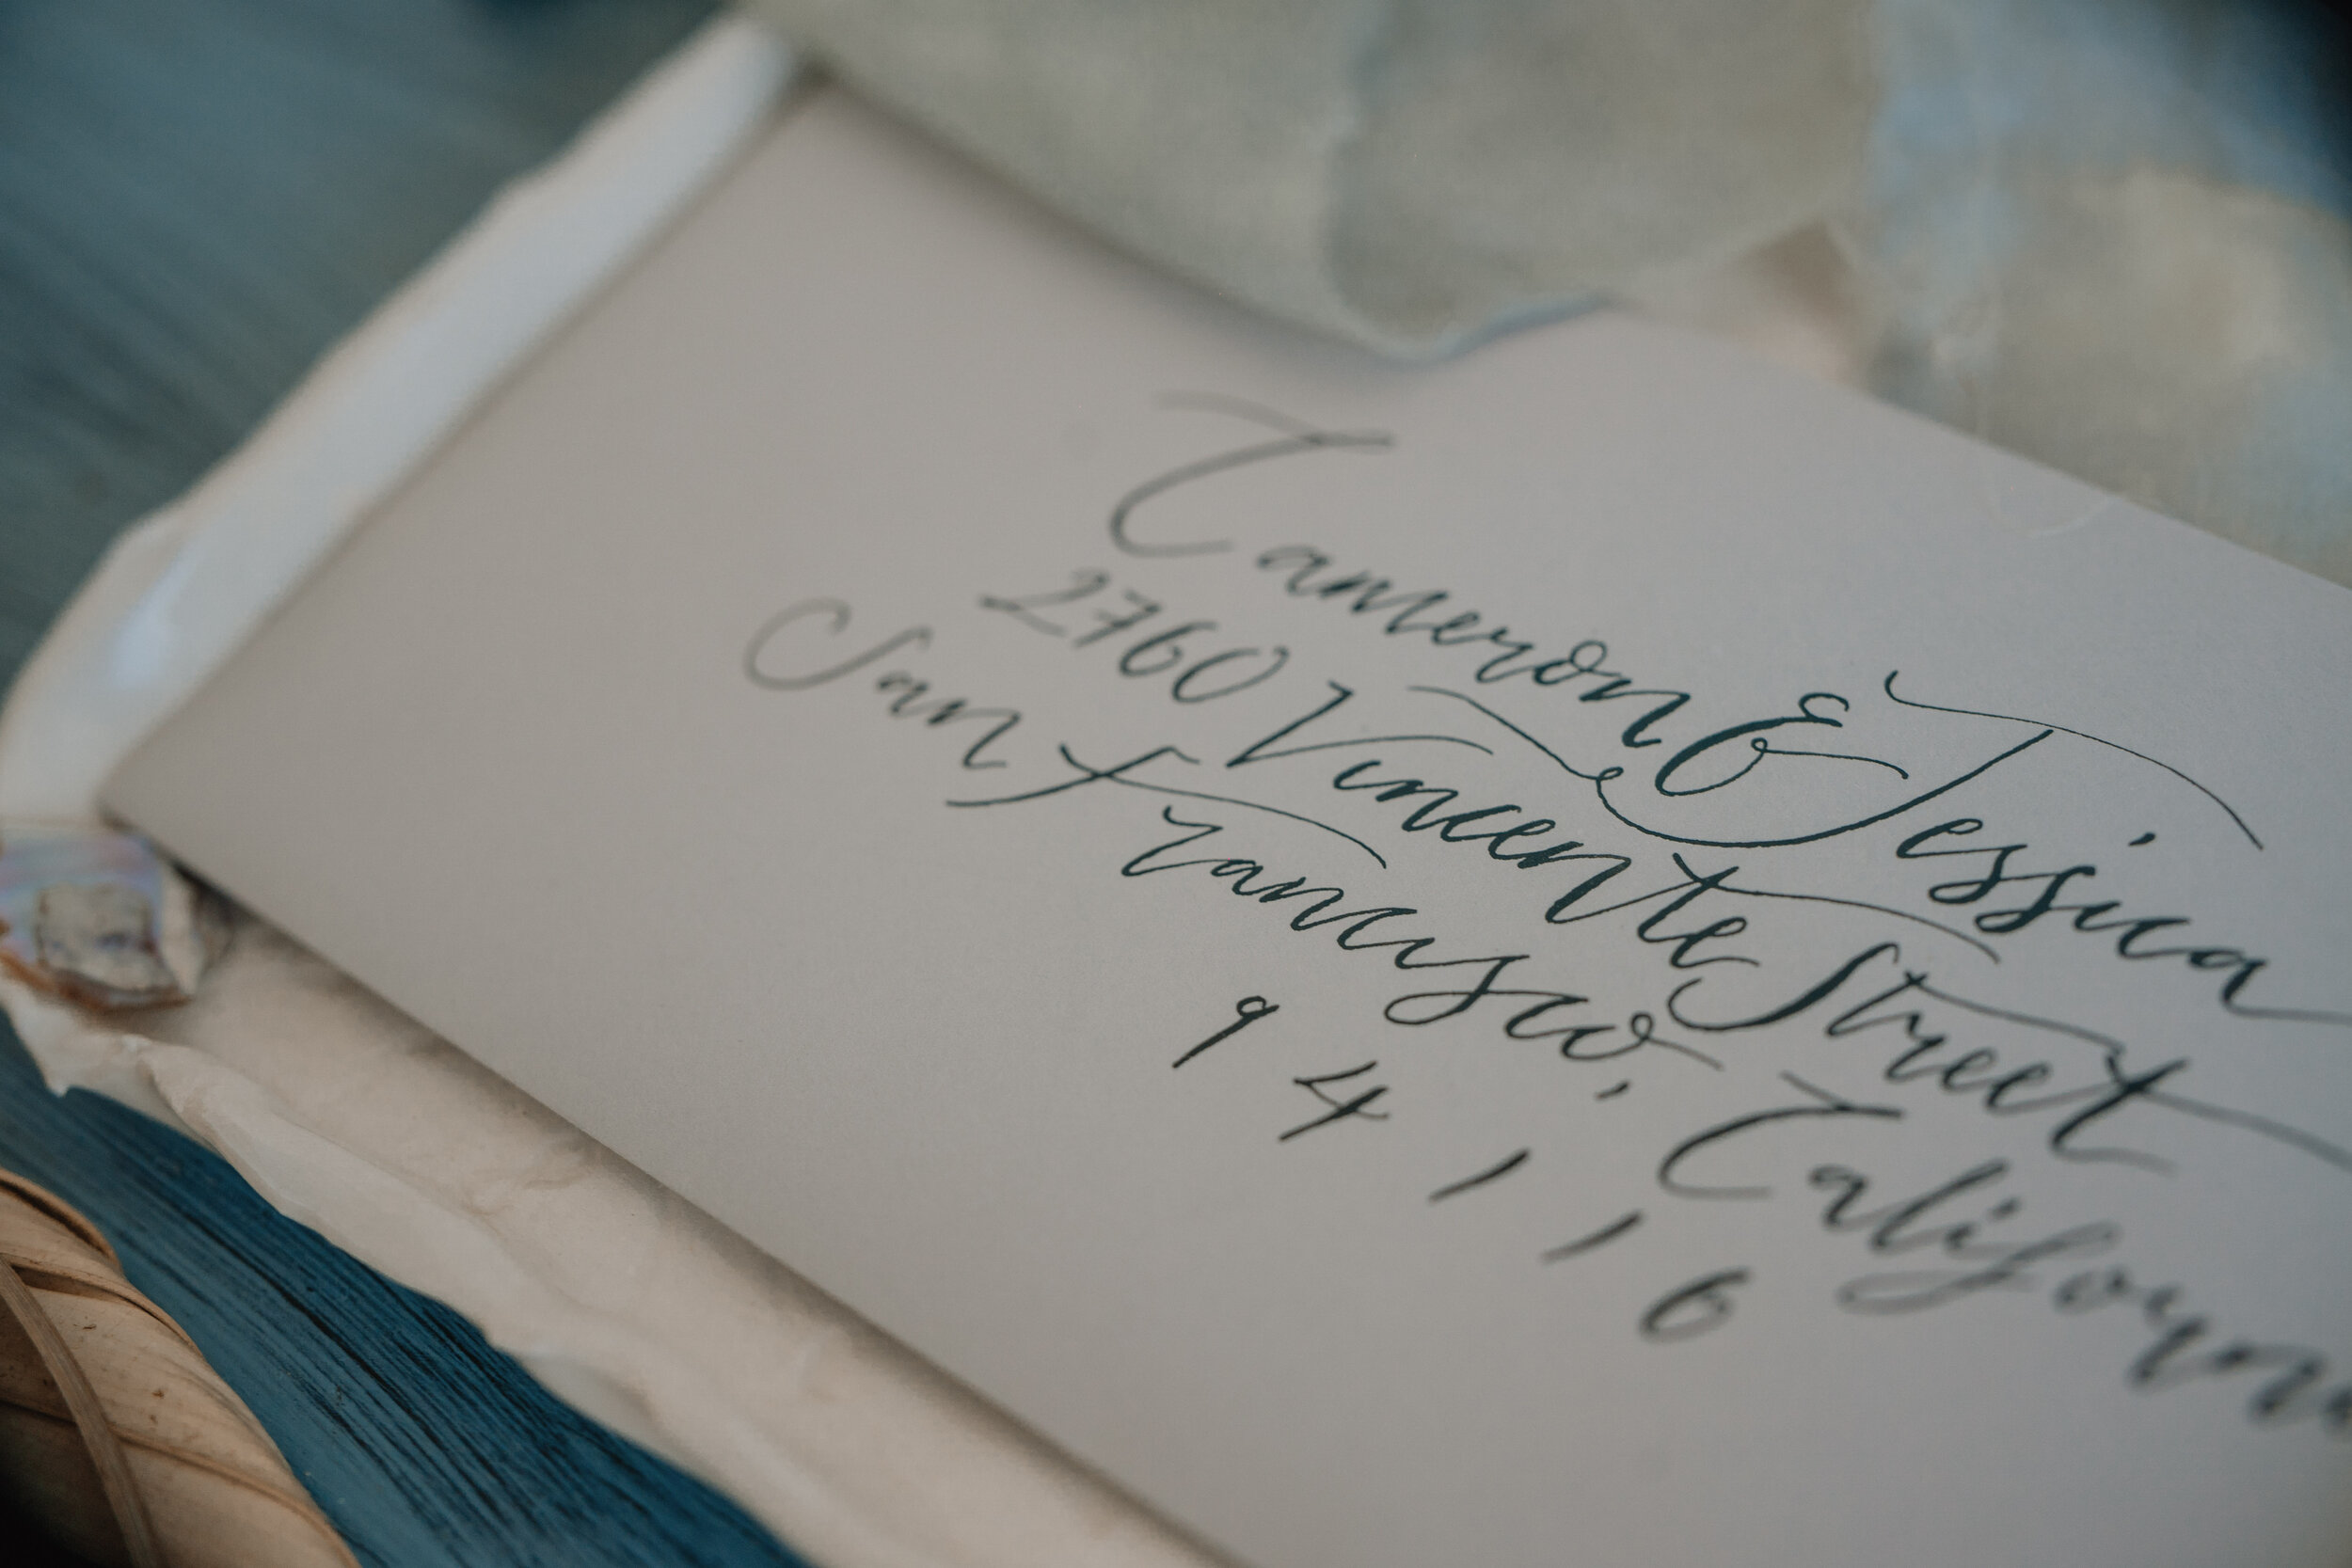 Cameron & Jessica
2760 Vincente Street
San Francisco, California
94116